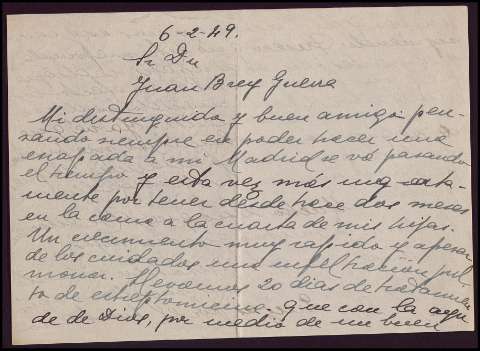 6-2-49.
Sr Dn
Juan Brey Guerra
Mi distinguido y buen amigo: pen-
sando siempre en poder hacer una
escapada a mi Madrid se vá pasando
el tiempo y esta vez más ingrata-
mente por tener desde hace dos meses
en la cama a la cuarta de mis hijas.
Un crecimiento muy rapido y apesar
de los cuidados una infiltración pul-
monar. Llevamos 20 dias de tratamien-
to de estreptomicina. que con la ayu
da de Dios, por medio de un buen